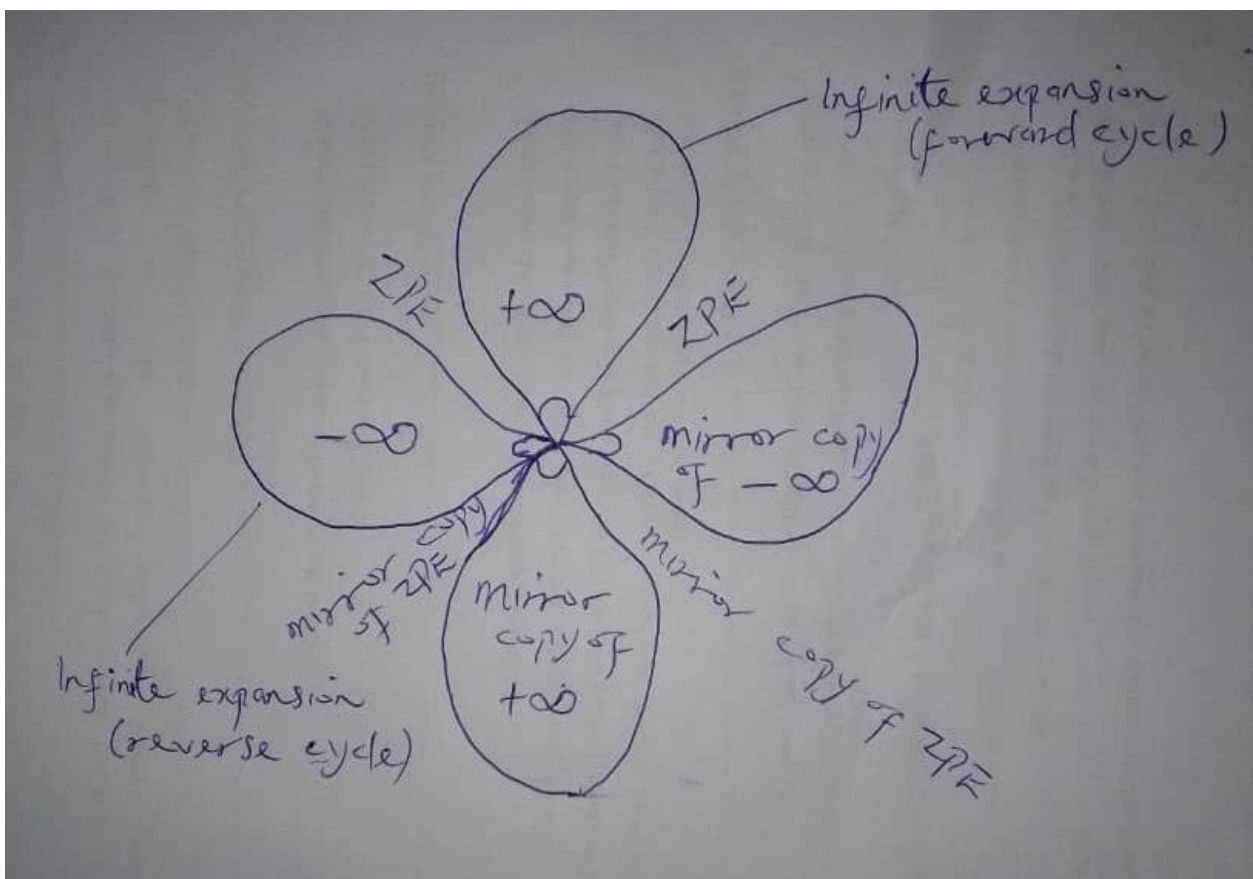 Infinite expansion
(forward cycle)
ZPE
+∞
ZPE
-∞
mirror copy
of -∞
mirror copy
of ZPE
mirror
copy of
+∞
mirror copy of ZPE
Infinite expansion
(reverse cycle)